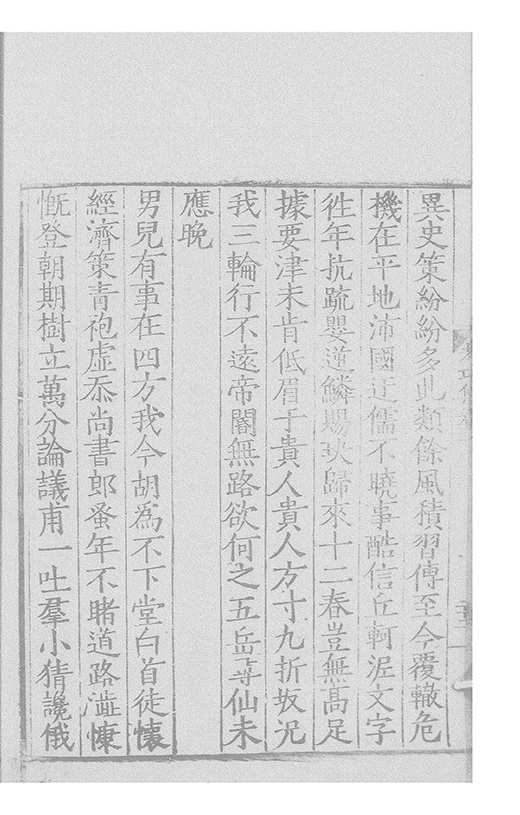 異史策紛紛多此類餘風積習傳至今覆轍危
機在平地沛國迂儒不曉事酷信丘軻泥文字
徃年抗疏嬰逆鱗賜玦歸來十二春豈無髙足
據要津未肯低眉于貴人貴人方寸九折坂況
我三輪行不遠帝閽無路欲何之五岳尋仙未
應晚
男兒有事在四方我今胡爲不下堂白首徒懐
經濟策青袍虛忝尚書郎蚤年不睹道路澁慷
慨登朝期樹立萬分論議甫一吐羣小猜讒俄